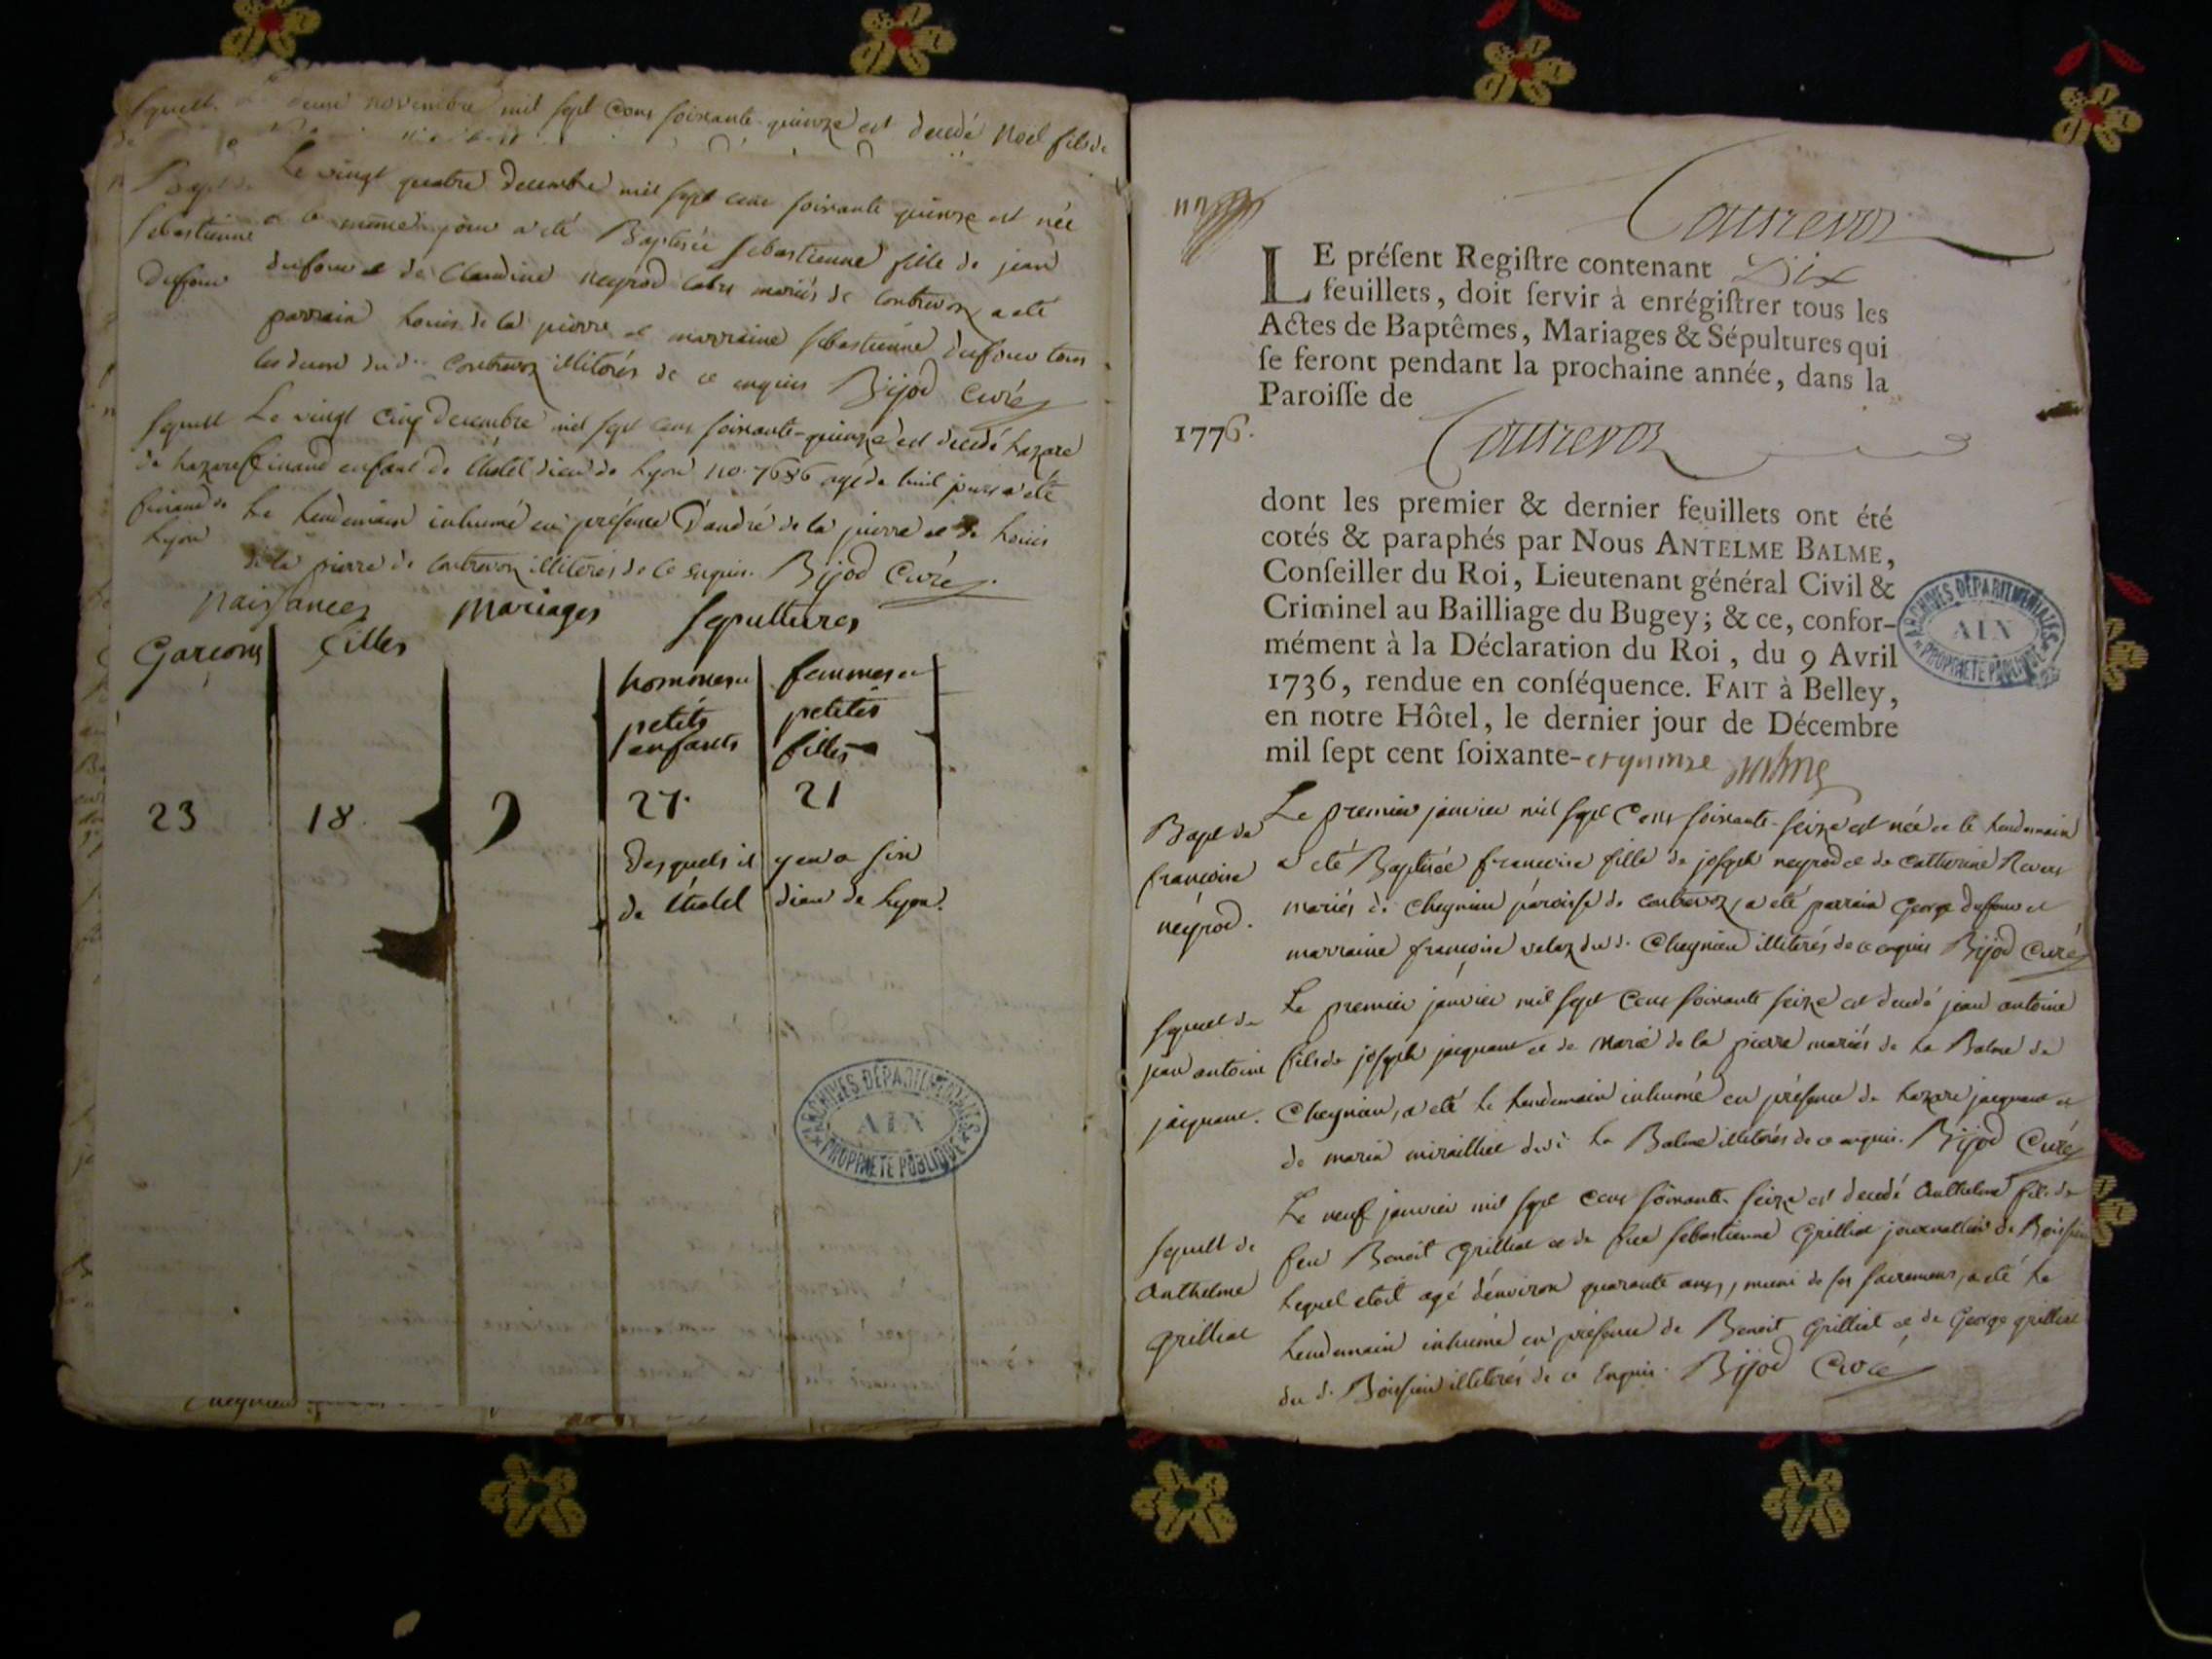 sepult. deux novembre mil sept cens soixante-quinze est decedé noël fils de
Bapt. de Le vingt quatre decembre mil sept cens soixante quinze est née
sebastienne et le même jour a été Baptisée sebastienne fille de jean
dufour dufour et de Claudine neyrod labrs mariés de contrevoz a été
parrain Louis de la pierre et marraine sebastienne dufour tous
les deux du d. contrevoz illiterés de ce enquis Bijod Curé
sepult Le vingt cinq decembre mil sept cens soixante-quinze est decedé Lazare
de Lazare finand enfant de l'hotel dieu de Lyon no. 7686 agé de huit jours a été
finand de Le Lendemain inhumé en présence d'andré de la pierre et de Louis
Lyon de la pierre de contrevoz illiterés de ce enquis. Bijod Curé
naissances Mariages sepultures
Garçons filles
hommes et femmes et
petits petites
enfants filles
23 18 9 27. 21
Desquels il y en a six
de l'hotel dieu de Lyon.
ARCHIVES DÉPARTEMENTALES
AIN
PROPRIÉTÉ PUBLIQUE
Contrevoz
LE préſent Regiſtre contenant Dix
feuillets, doit ſervir à enrégiſtrer tous les
Actes de Baptêmes, Mariages & Sépultures qui
ſe feront pendant la prochaine année, dans la
Paroiſſe de
1776. Contrevoz
dont les premier & dernier feuillets ont été
cotés & paraphés par Nous ANTELME BALME,
Conſeiller du Roi, Lieutenant général Civil &
Criminel au Bailliage du Bugey; & ce, confor-
mément à la Déclaration du Roi, du 9 Avril
1736, rendue en conſéquence. FAIT à Belley,
en notre Hôtel, le dernier jour de Décembre
mil ſept cent ſoixante-et quinze Balme
ARCHIVES DÉPARTEMENTALES
AIN
PROPRIÉTÉ PUBLIQUE
Bapt de Le premier janvier mil sept Cens soixante-seize est née et le Lendemain
françoise a été Baptisée françoise fille de joseph neyrod et de Catherine
neyrod. mariés de Cheynieu paroisse de contrevoz, a été parrain George dufour et
marraine françoise velaz du d. Cheynieu illiterés de ce enquis Bijod Curé
sepult de Le premier janvier mil sept Cens soixante seize est decedé jean antoine
jean antoine fils de joseph jacquant et de Marie de la pierre mariés de La Balme de
jacquant. Cheynieu, a été le Lendemain inhumé en présence de Lazare jacquant et
de marin miralliet du d. La Balme illiterés de ce enquis. Bijod Curé
Le neuf janvier mil sept cens soixante-seize est decedé Anthelme fils de
sepult de feu Benoit Grilliet et de feue sebastienne Grilliet journallier de Boissieu
Anthelme Lequel etoit agé d'environ quarante ans, muni de ses sacremens, a été Le
Grilliet Lendemain inhumé en présence de Benoit Grilliet et de George grilliet
du d. Boissieu illiterés de ce Enquis. Bijod Curé